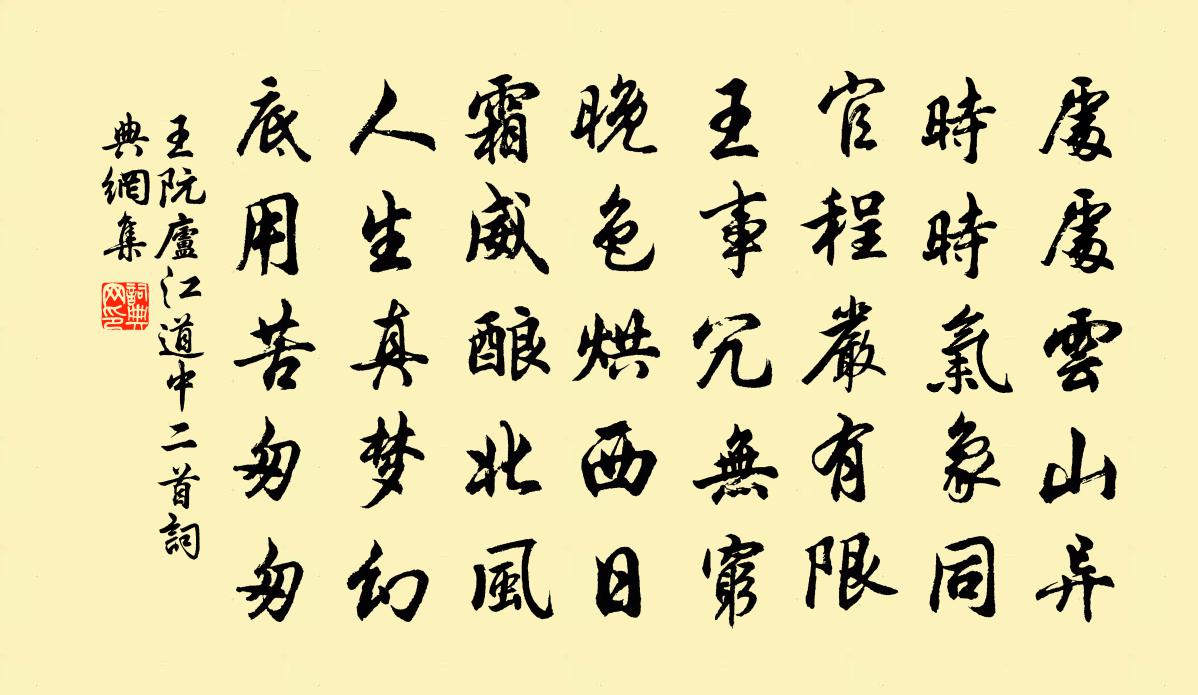 處處雲山异
時時氣象同
官程嚴有限
王事冗無窮
晚色烘西日
霜威酿北風
人生真梦幻
底用苦匆匆
王阮廬江道中二首詞
典網集
詞典
网印